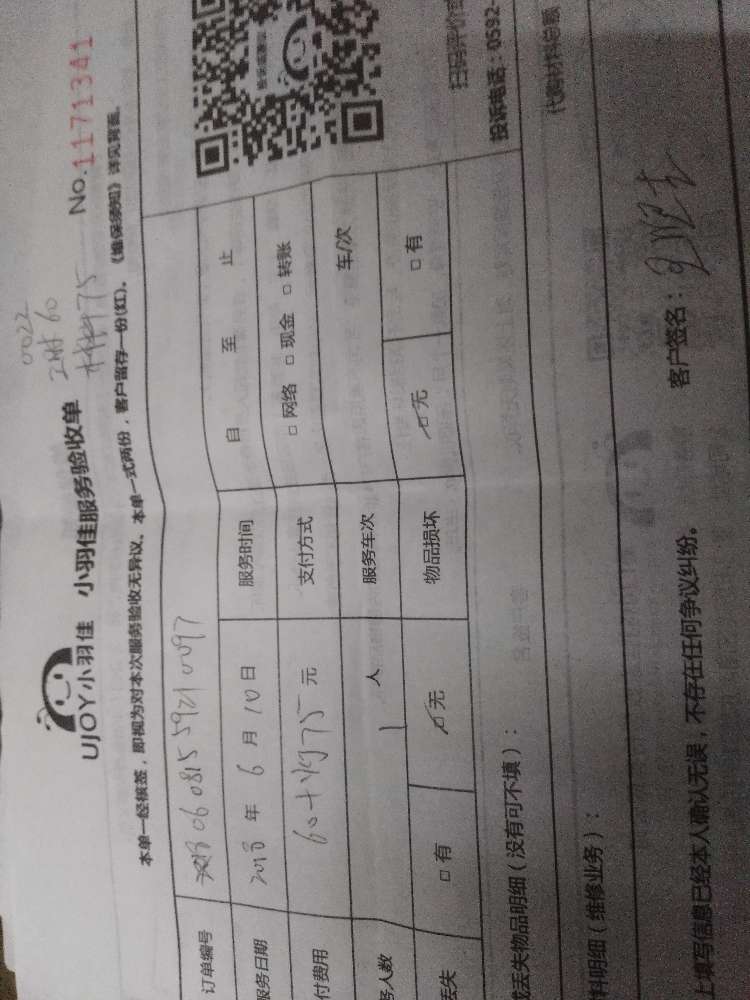 0022
工时60
材料75
UJOY小羽佳 小羽佳服务验收单 No.1171341
本单一经核签，即视为对本次服务验收无异议。本单一式两份，客户留存一份(红)。《维保须知》详见背面。
订单编号 0608155921 0097
服务日期 2018 年 6 月 10 日 服务时间 自 至 止
付费用 60+灯75 元 支付方式 □ 网络 □ 现金 □ 转账
务人数 1 人 服务车次 车/次
丢失 □ 有 ☑ 无 物品损坏 ☑ 无 □ 有
扫码评价或
投诉电话：0592-
或丢失物品明细（没有可不填）：
代购材料总额
料明细（维修业务）：
上填写信息已经本人确认无误，不存在任何争议纠纷。 客户签名：